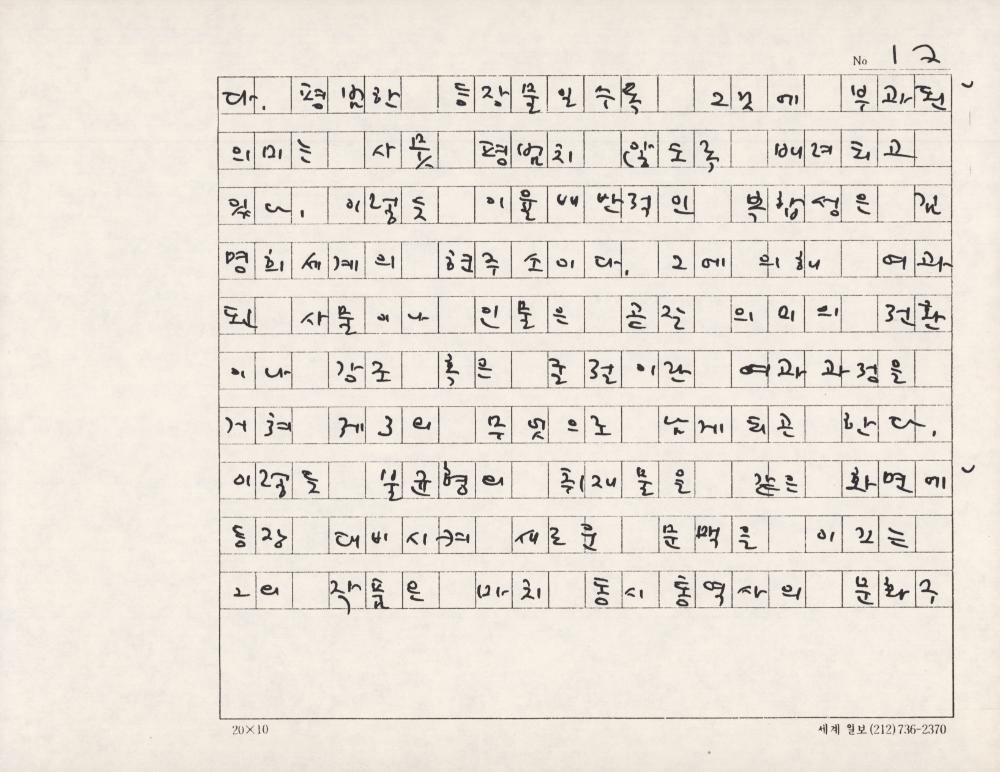 No 12
다. 평범한 등장물일수록 그것에 부과된
의미는 사뭇 평범치 않도록 배려되고
있다. 이렇듯 이율배반적인 복합성은
명회세계의 현주소이다. 그에 의해 여과
된 사물이나 인물은 곧잘 의미의 전환
이나 강조 혹은 굴절이란 여과과정을
거쳐 제3의 무엇으로 남게되곤 한다.
이렇듯 불균형의 취재물을 같은 화면에
등장 대비시켜 새로운 문맥을 이끄는
그의 작품은 마치 동시통역사의 문화주
20×10
세계 일보 (212) 736-2370